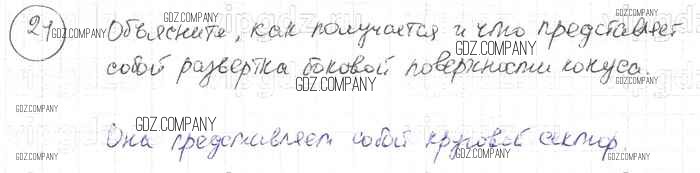 21 Объясните, как получается и что представляет
собой развертка боковой поверхности конуса.
Она представляет собой круговой сектор.
GDZ.COMPANY
GDZ.COMPANY
GDZ.COMPANY
GDZ.COMPANY
GDZ.COMPANY
GDZ.COMPANY
GDZ.COMPANY
GDZ.COMPANY